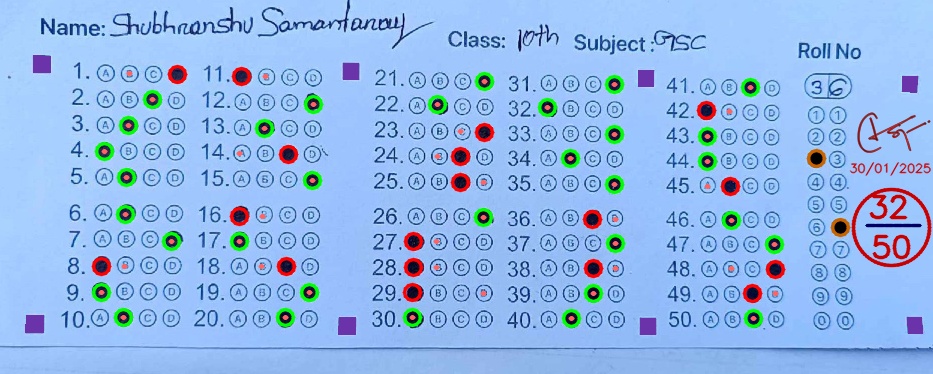 Name: Shubhranshu Samantaray
Class: 10th Subject: GSC
Roll No
36
1. A B C
2. A B D
3. A C D
4. B C D
5. A C D
6. A C D
7. A B C
8. B C D
9. B C D
10. A C D
11. B C D
12. A B C
13. A C D
14. A B D
15. A B C
16. B C D
17. B C D
18. A B D
19. A B C
20. A B D
21. A B C
22. A C D
23. A B C
24. A B D
25. A B D
26. A B C
27. B C D
28. B C D
29. B C D
30. B C D
31. A B C
32. B C D
33. A B C
34. A C D
35. A B C
36. A B D
37. A B C
38. A B D
39. A B D
40. A C D
41. A B D
42. B C D
43. B C D
44. B C D
45. A C D
46. A C D
47. A B C
48. A B C
49. A B D
50. A B D
1 1
2 2
3
4 4
5 5
6
7 7
8 8
9 9
0 0
30/01/2025
32
50